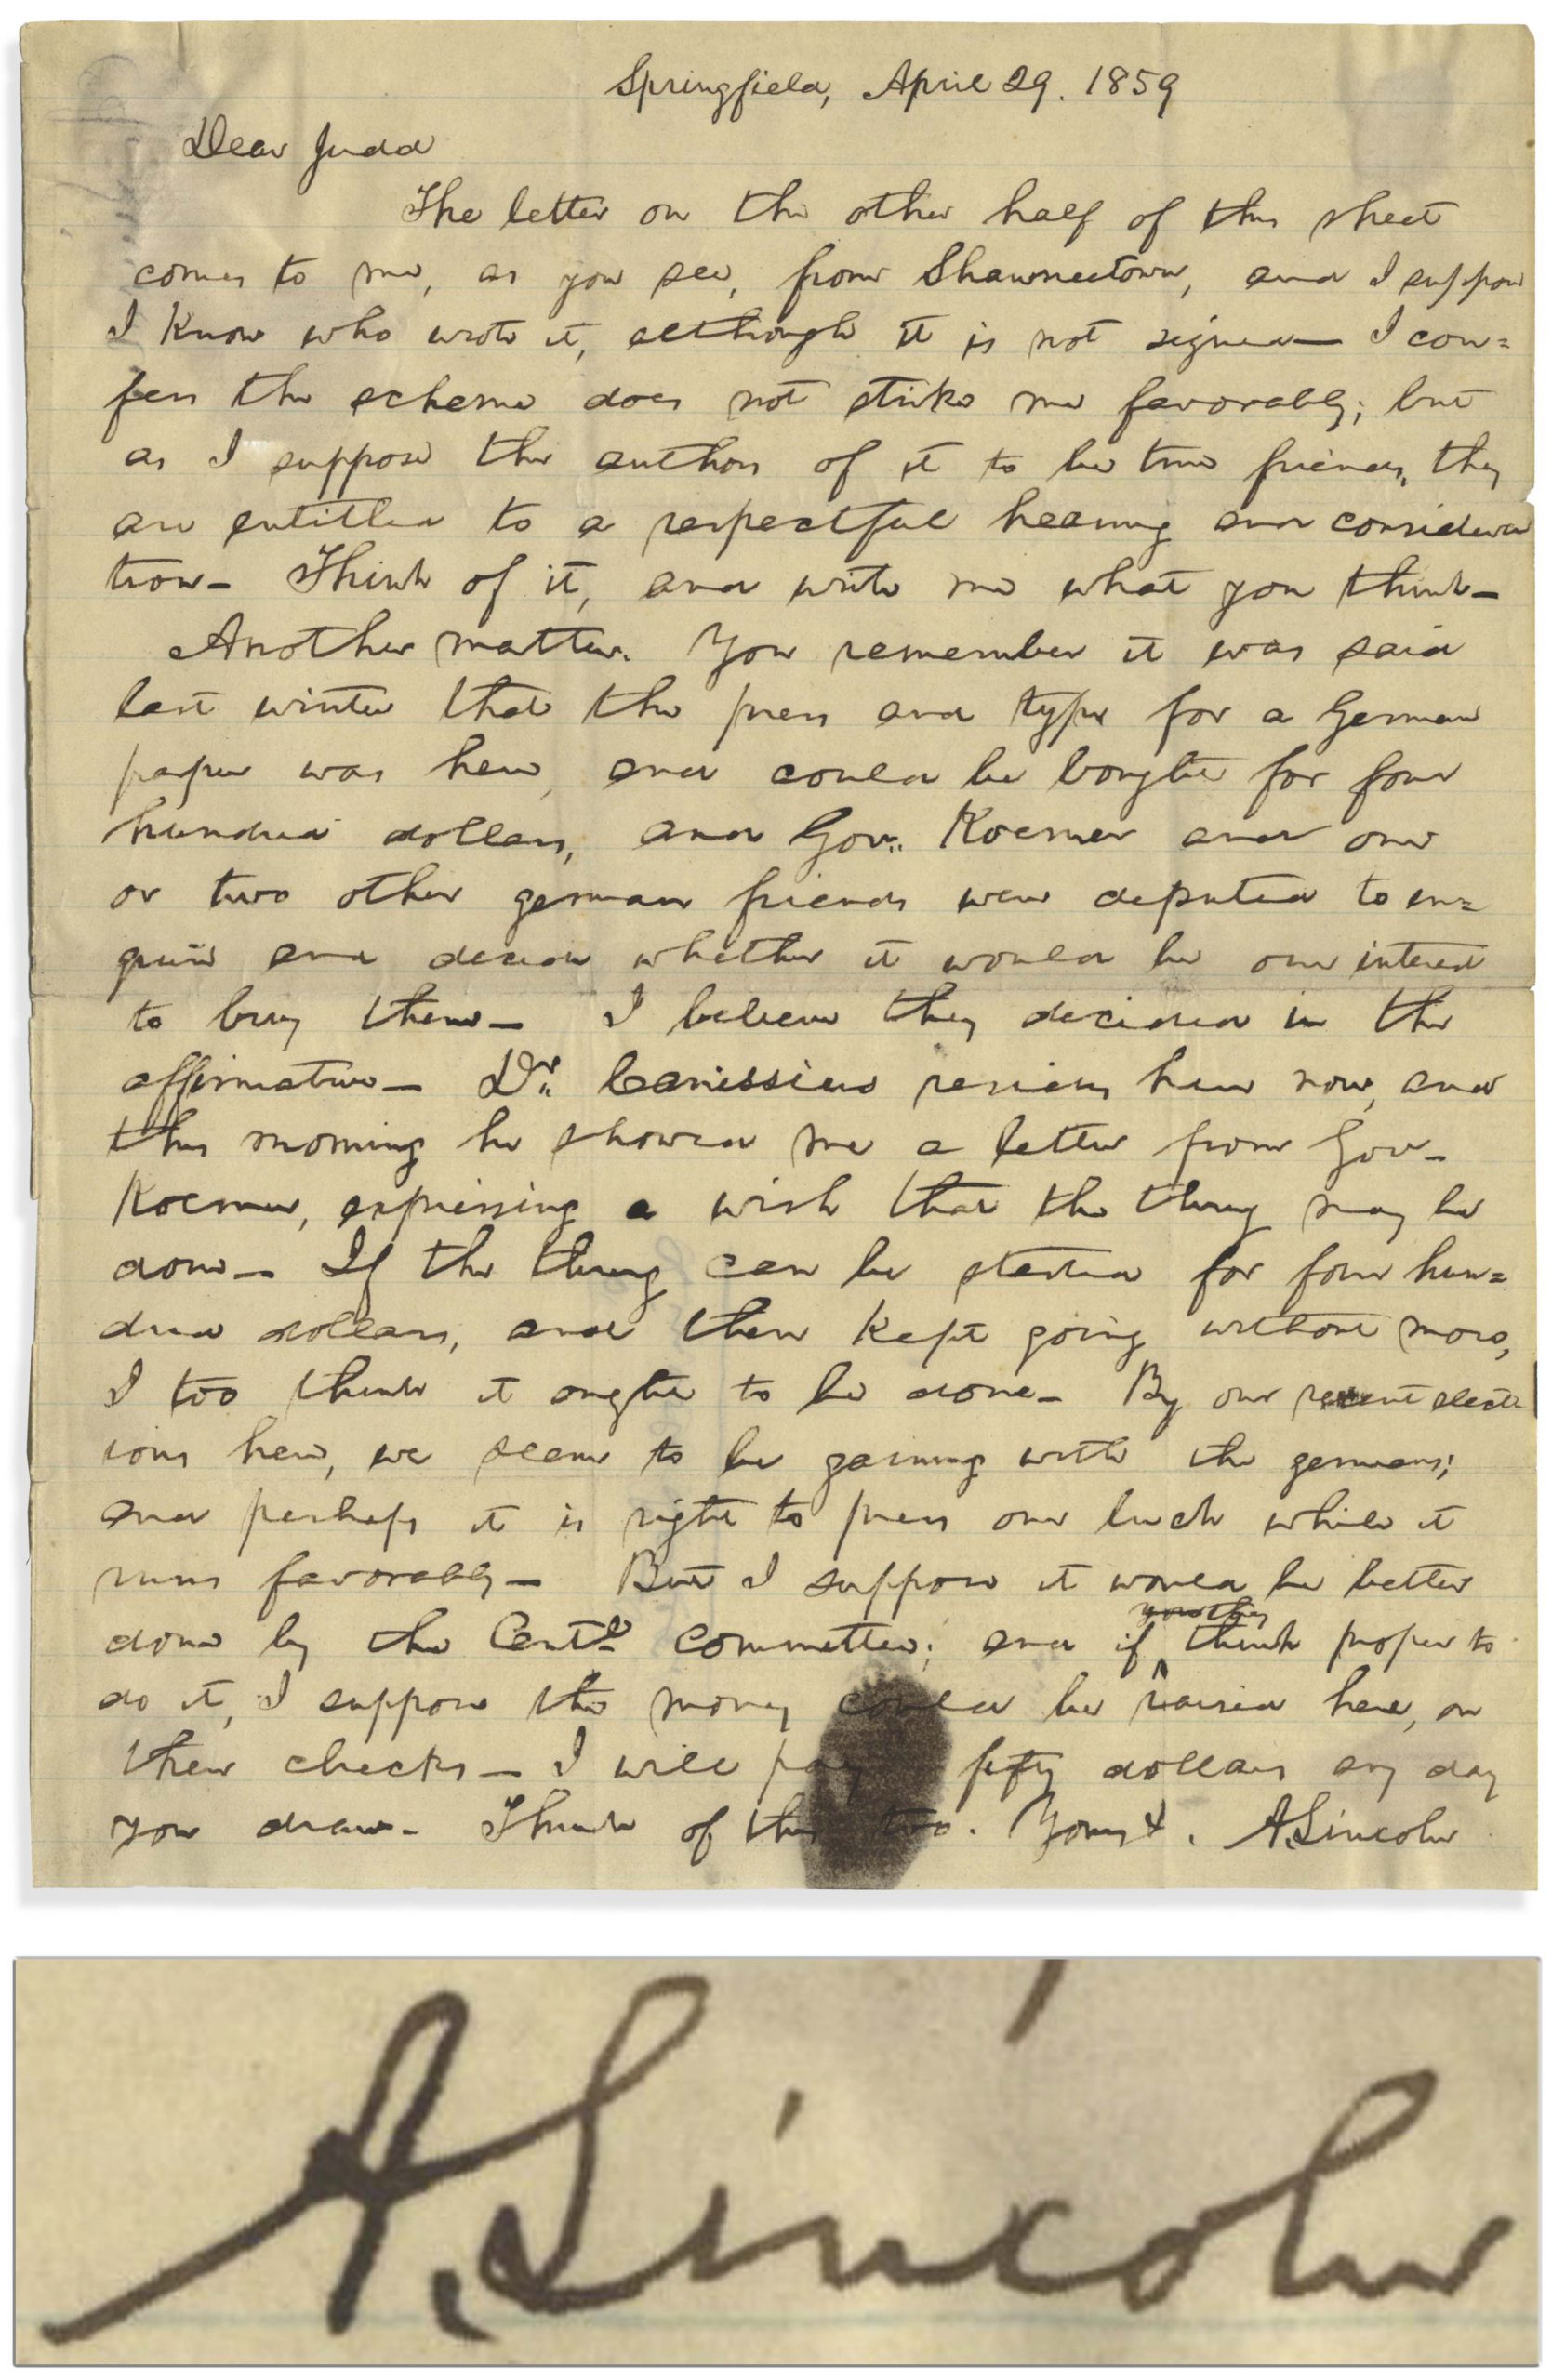 Springfield, April 29. 1859
Dear Judd
The letter on the other half of this sheet
comes to me, as you see, from Shawneetown, and I suppose
I know who wrote it, although it is not signed— I con=
fess the scheme does not strike me favorably; but
as I suppose the authors of it to be true friends, they
are entitled to a respectful hearing and considera
tion— Think of it, and write me what you think—
Another matter. You remember it was said
last winter that the press and type for a German
paper was here, and could be bought for four
hundred dollars, and Gov. Koerner and one
or two other german friends were deputed to in=
quire and decide whether it would be our interest
to buy them— I believe they decided in the
affirmative— Dr. Canissieus resides here now, and
this morning he showed me a letter from Gov—
Koerner, expressing a wish that the thing may be
done— If the thing can be started for four hun=
dred dollars, and then kept going without more,
I too think it ought to be done— By our recent elect=
ions here, we seem to be gaining with the germans;
and perhaps it is right to press our luck while it
runs favorably— But I suppose it would be better
you they
done by the Centl committee; and if think proper to
do it, I suppose the money could be raised here, on
their checks— I will pay fifty dollars any day
you draw— Think of this too. Yours &. A. Lincoln
A. Lincoln